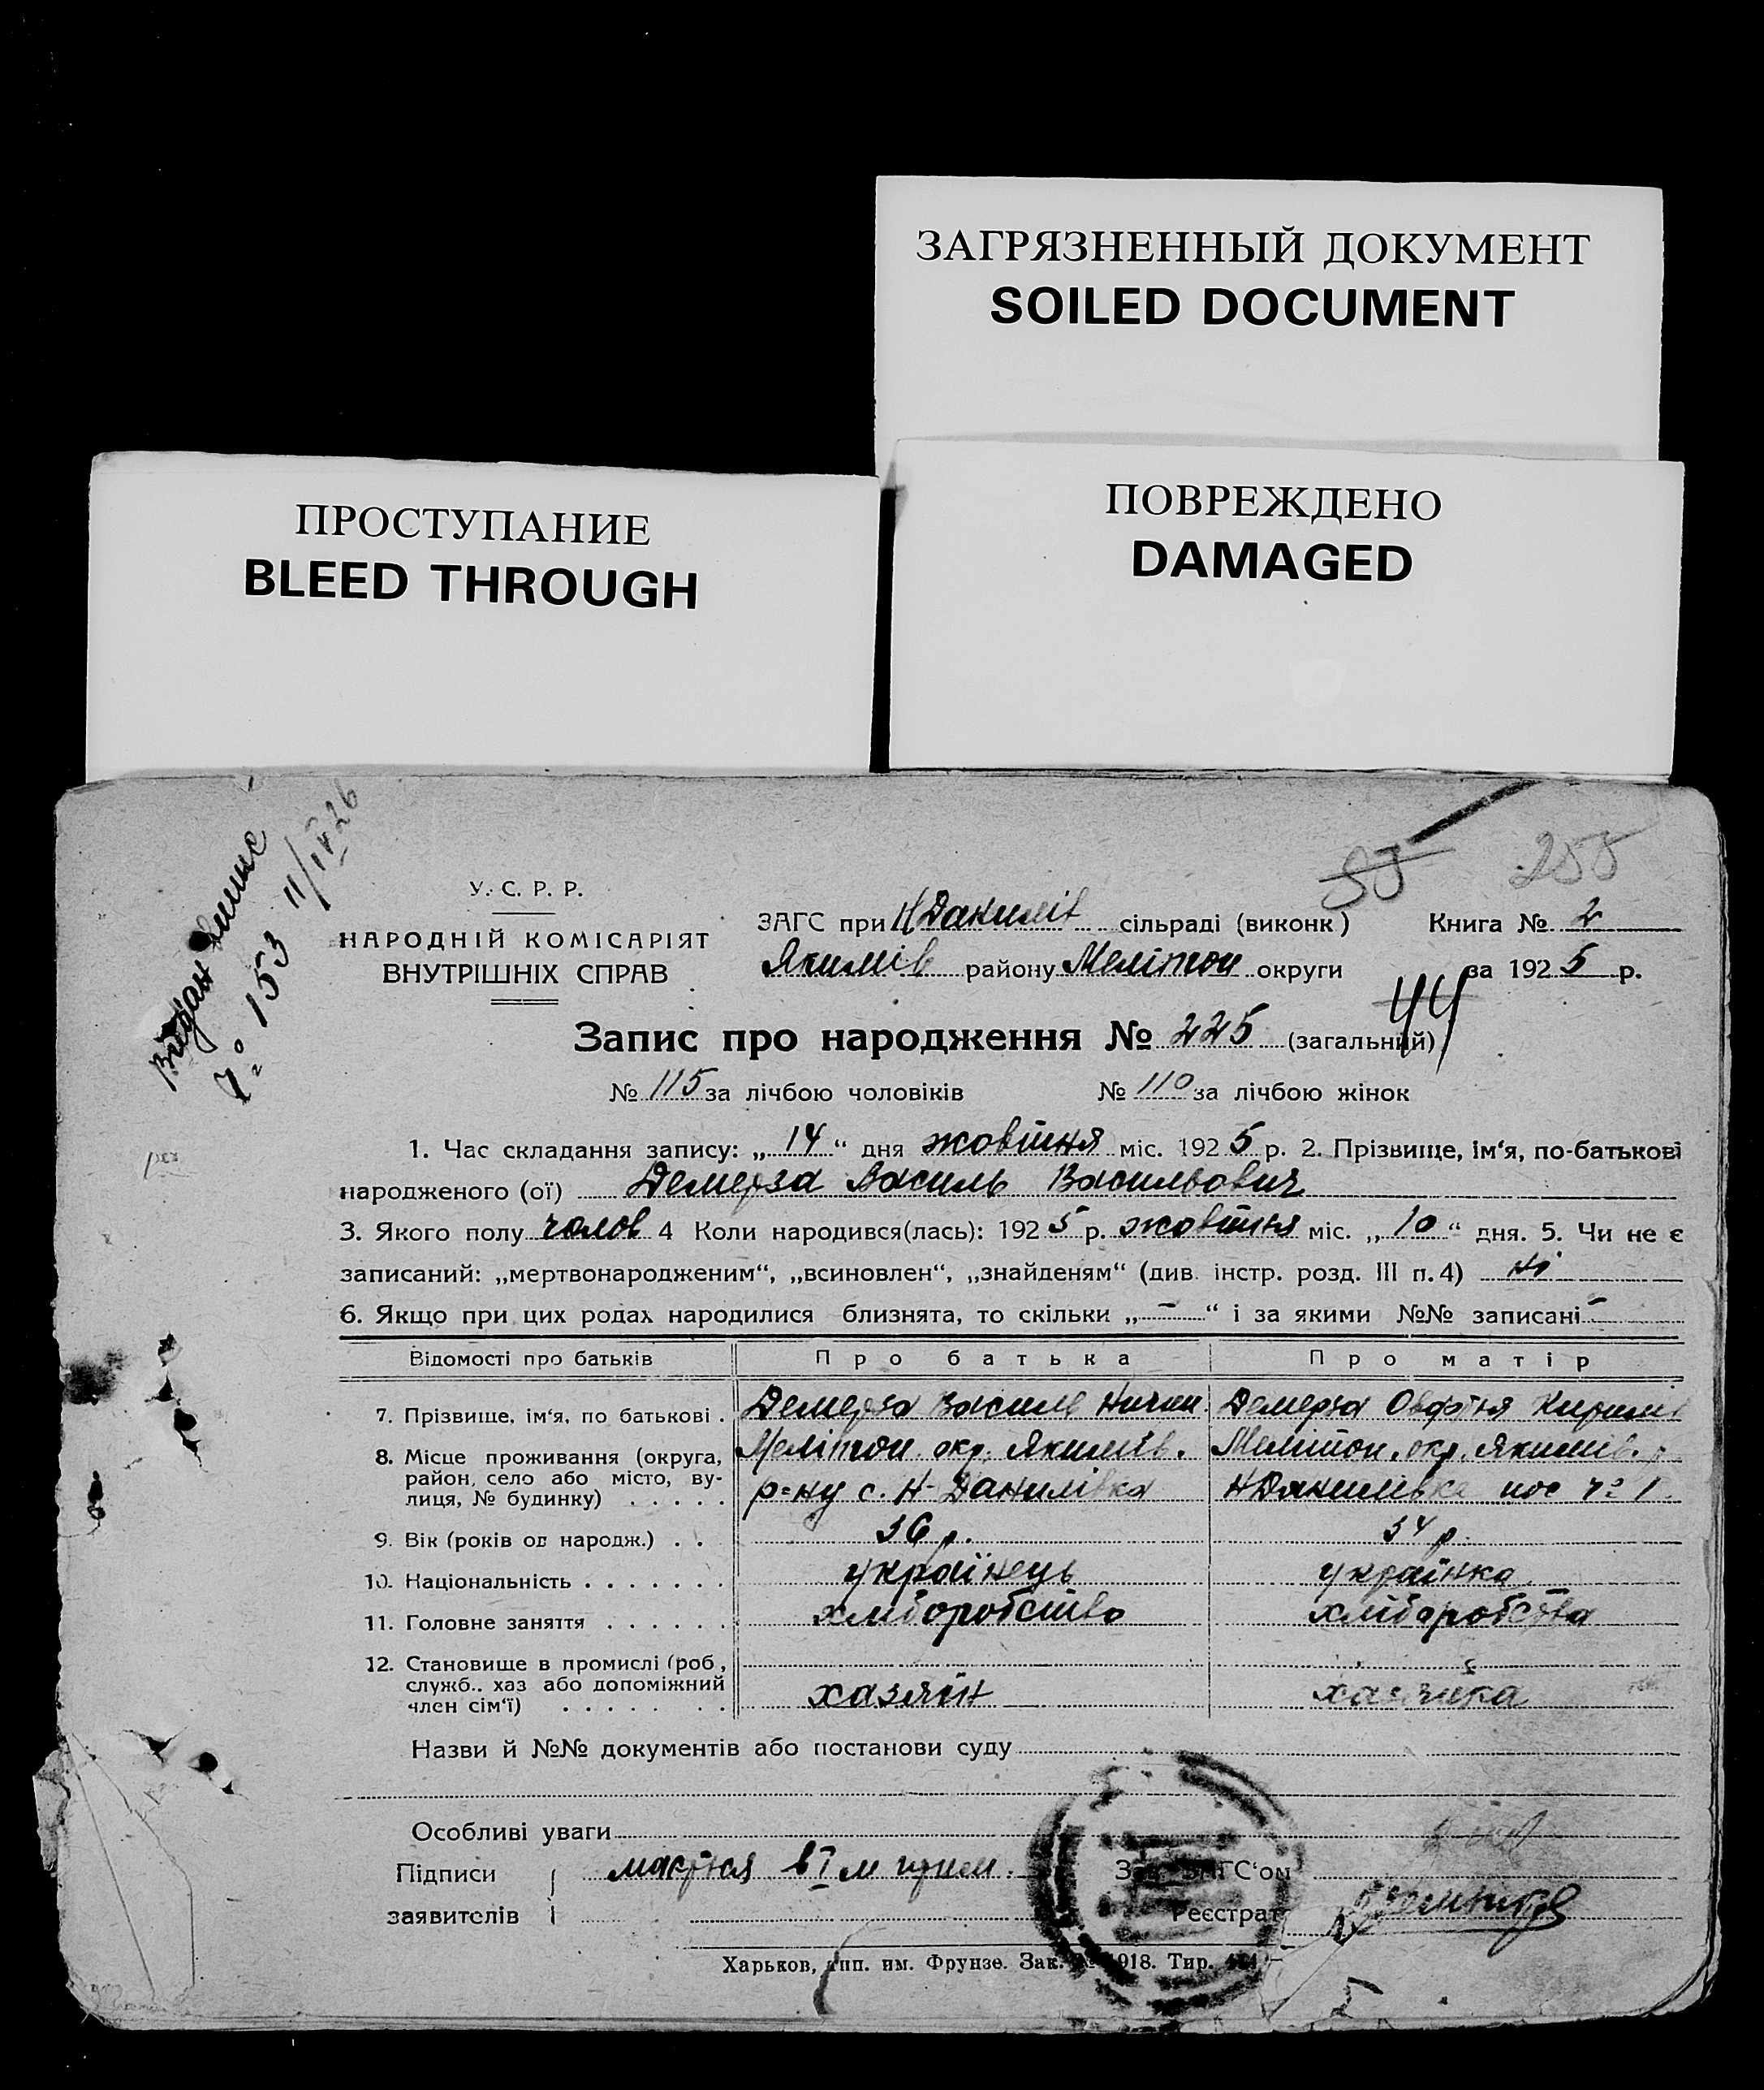 ЗАГРЯЗНЕННЫЙ ДОКУМЕНТ
SOILED DOCUMENT
ПРОСТУПАНИЕ
BLEED THROUGH
ПОВРЕЖДЕНО
DAMAGED
Видан випис
№ 153 11/IV 26
255
У. С. Р. Р.
НАРОДНІЙ КОМІСАРІЯТ
ВНУТРІШНІХ СПРАВ
ЗАГС при Н Данилів сільраді (виконк) Книга № 2
Якимів району Меліton округи за 1925 р.
44
Запис про народження № 225 (загальний)
№ 115 за лічбою чоловіків № 110 за лічбою жінок
1. Час складання запису: „14“ дня жовтня міс. 1925 р. 2. Прізвище, ім‘я, по-батькові
народженого (ої) Демерза Василь Васильович
3. Якого полу чолов 4 Коли народився(лась): 1925 р. жовтня міс. „10“ дня. 5. Чи не є
записаний: „мертвонародженим“, „всиновлен“, „знайденям“ (див. інстр. розд. III п. 4) ні
6. Якщо при цих родах народилися близнята, то скільки „–“ і за якими №№ записані –
Відомості про батьків Про батька Про матір
7. Прізвище, ім‘я, по батькові . Демерза Василь Ничип. Демерза Кирилів
8. Місце проживання (округа, Меліton окр. Якимів. Меліton. окр. Якимів. р
район, село або місто, ву- р=ну с. Н-Данилівка Н Данилівка пос № 1
лиця, № будинку) . . . . .
9. Вік (років од народж.) . . 36 р. 34 р.
10. Національність . . . . . . . українець українка
11. Головне заняття . . . . . . хліборобство хліборобства
12. Становище в промислі (роб.,
служб., хаз або допоміжний хазяїн хазяйка
член сім‘ї) . . . . . . .
Назви й №№ документів або постанови суду
Особливі уваги
Підписи Зав. ЗАГС‘ом
заявителів Реєстрат
Харьков, тип. им. Фрунзе. Зак. № 918. Тир.